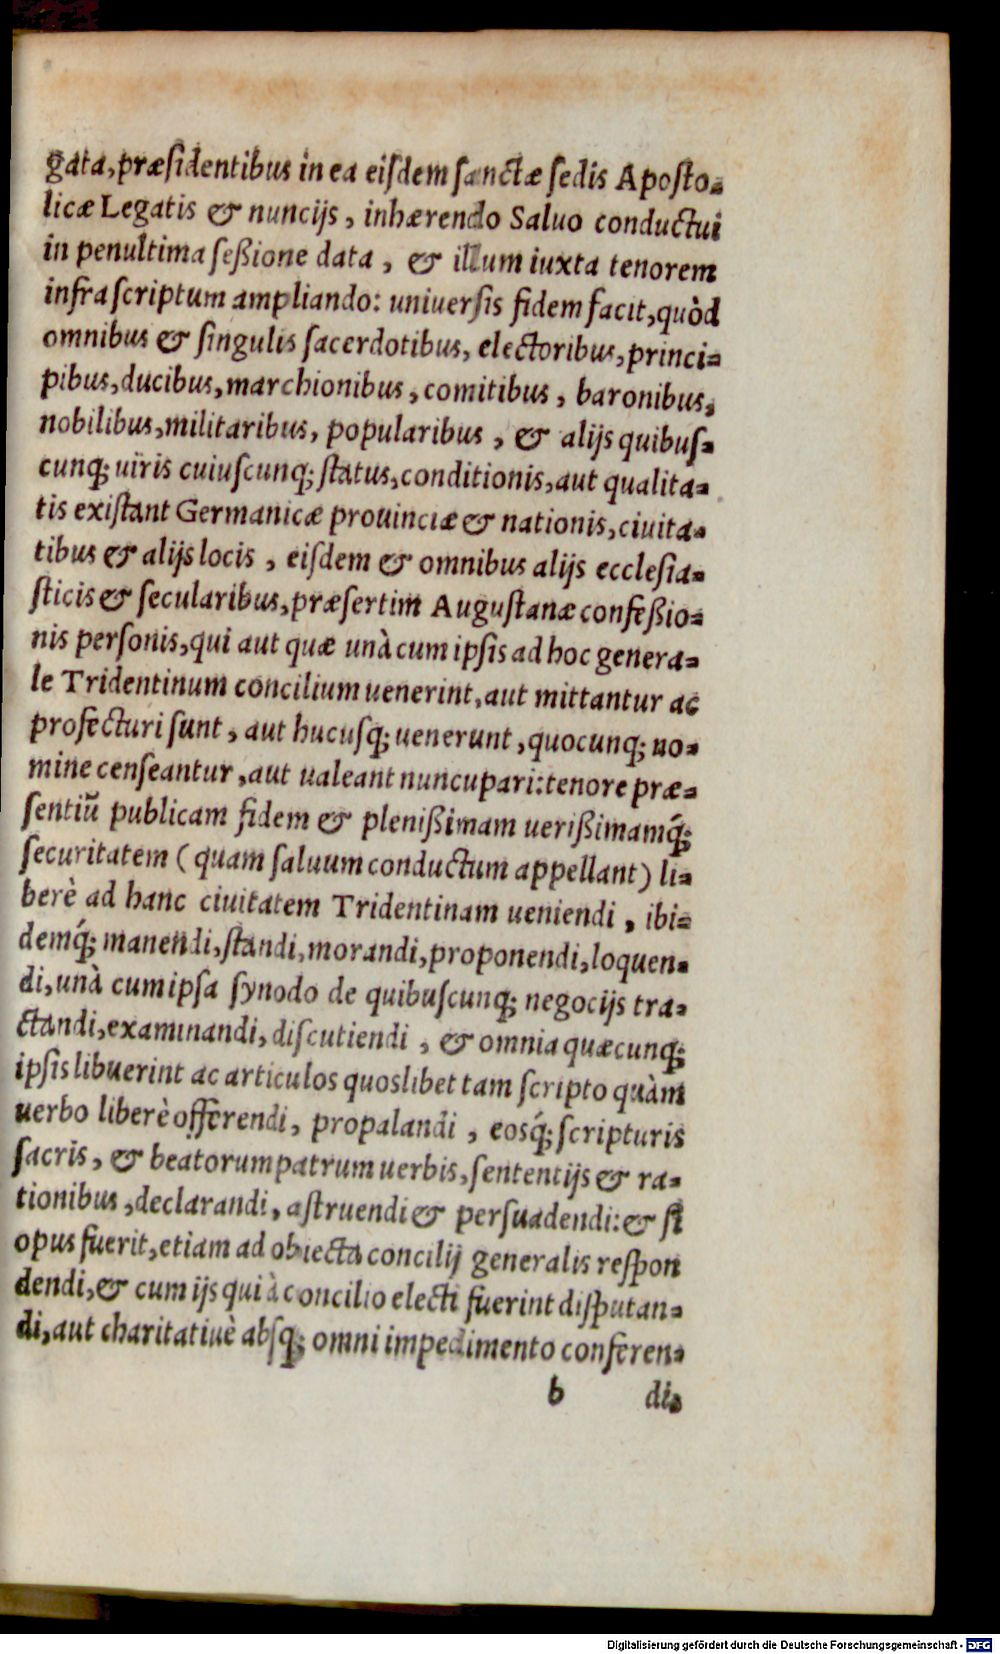 gata, præsidentibus in ea eiſdem ſanctæ ſedis Apoſto-
licæ Legatis & nuncijs, inhærendo Saluo conductui
in penultima ſeßione data, & illum iuxta tenorem
infraſcriptum ampliando: uniuerſis fidem facit, quòd
omnibus & ſingulis ſacerdotibus, electoribus, princi-
pibus, ducibus, marchionibus, comitibus, baronibus,
nobilibus, militaribus, popularibus, & alijs quibuſ-
cunq; uiris cuiuſcunq; ſtatus, conditionis, aut qualita-
tis exiſtant Germanicæ prouinciæ & nationis, ciuita-
tibus & alijs locis, eiſdem & omnibus alijs eccleſia-
ſticis & ſecularibus, præſertim Auguſtanæ confeßio-
nis perſonis, qui aut quæ unà cum ipſis ad hoc genera-
le Tridentinum concilium uenerint, aut mittantur ac
profecturi ſunt, aut hucuſq; uenerunt, quocunq; no-
mine cenſeantur, aut ualeant nuncupari: tenore præ-
ſentiū publicam fidem & plenißimam uerißimamq́;
ſecuritatem (quam ſaluum conductum appellant) li-
berè ad hanc ciuitatem Tridentinam ueniendi, ibi-
demq́; manendi, ſtandi, morandi, proponendi, loquen-
di, unà cum ipſa ſynodo de quibuſcunq; negocijs tra-
ctandi, examinandi, diſcutiendi, & omnia quæcunq;
ipſis libuerint ac articulos quoslibet tam ſcripto quàm
uerbo liberè offerendi, propalandi, eosq́; ſcripturis
ſacris, & beatorum patrum uerbis, ſententijs & ra-
tionibus, declarandi, aſtruendi & perſuadendi: & ſi
opus fuerit, etiam ad obiecta concilij generalis reſpon
dendi, & cum ijs qui à concilio electi fuerint diſputan-
di, aut charitatiuè abſq; omni impedimento conferen-
b di-
Digitalisierung gefördert durch die Deutsche Forschungsgemeinschaft - DFG